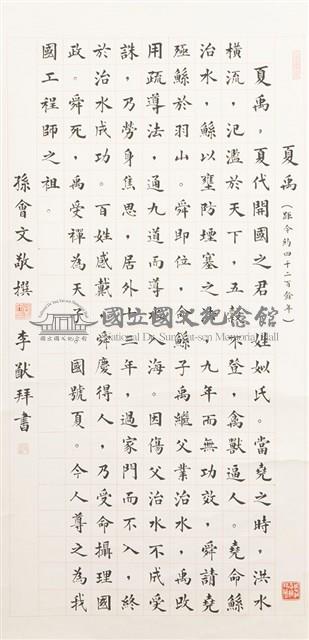 夏禹（距今約四千二百餘年）
夏禹，夏代開國之君，姓姒氏。當堯之時，洪水
橫流，氾濫於天下，五穀不登，禽獸逼人。堯命鯀
治水，鯀以壅防堙塞之，九年而無功效，舜請堯
殛鯀於羽山。舜即位，命鯀子禹繼父業治水，禹改
用疏導法，通九道而導海。因傷父治水不成受
誅，乃勞身焦思，居外三年，過家門而不入，終
於治水成功。百姓感戴，舜慶得人，乃受命攝理國
政。舜死，禹受禪為天子，國號夏。今人尊之為我
國工程師之祖。
孫會文敬撰 李猷拜書
國立國父紀念館
National Dr. Sun Yat-sen Memorial Hall